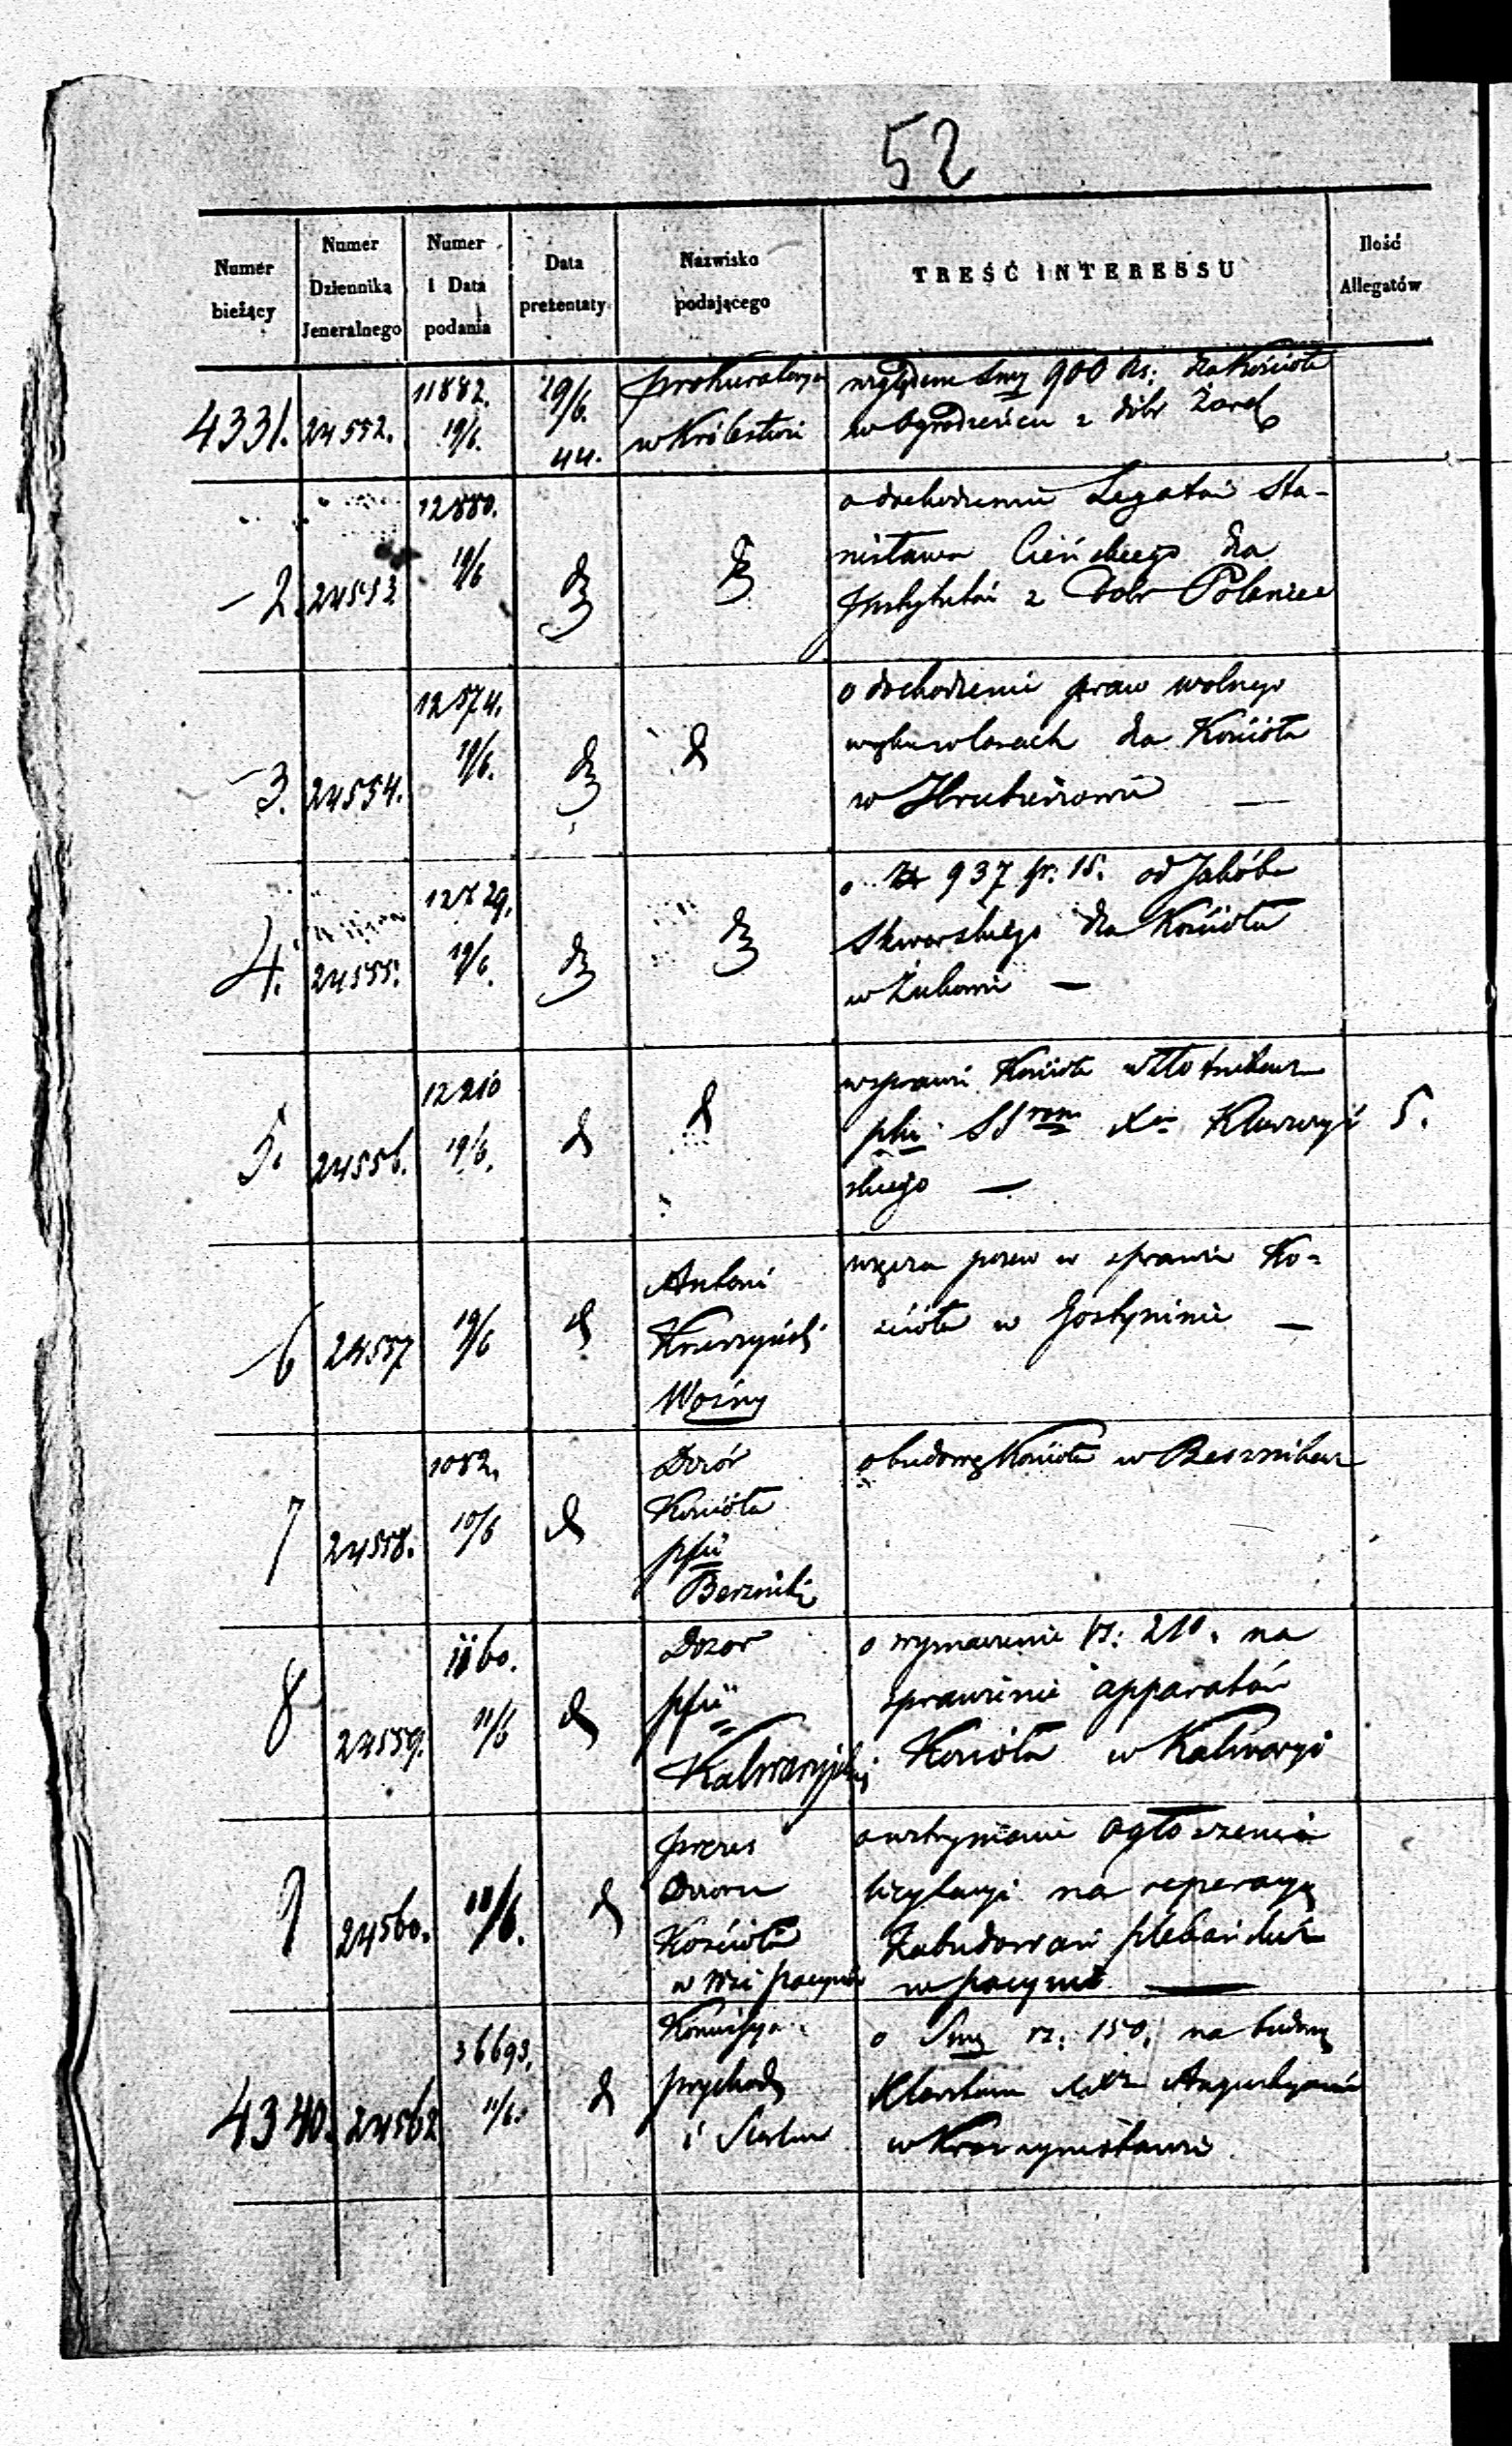 52
Numer bieżący
Numer Dziennika Jeneralnego
Numer i Data podania
Data prezentaty
Nazwisko podającego
TREŚĆ INTERESSU
Ilość Allegatów
4331. 24552. 11882. 19/6. 29/6. 44. Prokuratorya w Królestwie
względem Smy 900 Rs: dla Kościoła
w Ogrodzieńcu z dóbr Żarek
2. 24553 12880. 19/6
o dochodzenie Legatów Sta-
nisława Cieńskiego dla
Instytutów z Dóbr Połaniec
3. 24554. 12574. 19/6.
o dochodzenie praw wolnego
w lasach dla Kościoła
w Hrubieszowie —
4. 24555. 12729. 19/6.
o Zł 937 gr: 15. od Jakóba
Skworskiego dla Kościoła
w Żukowie —
5. 24556. 12210 19/6.
w sprawie Kościoła
plko SSrom Xa
skiego — 5.
6 24557 19/6
Antoni
Woźny
pozew w sprawie Ko-
ścioła w Gostyninie —
7 24558. 1082. 10/6
Dozór
Kościoła
pfii
Berznicki
o budowę Kościoła w Berznikach
8 24559. 1160. 11/6
Dozor
pfii
Kalwaryjski
o wyznaczenie rs: 210. na
sprawienie apparatów
Kościoła w Kalwaryi
9 24560. 10/6.
Prezes
Dozoru
Kościoła
w Wsi Pacynie
o wstrzymanie ogłoszenia
licytacyi na reperacyę
Zabudowań plebańskich
w Pacynie —
4340. 24562 36693. 11/6.
Kommissya
Przychodów
i Skarbu
o Smę rs: 150. na budowę
Klasztoru XXży Augustyanów
w Krasnymstawie